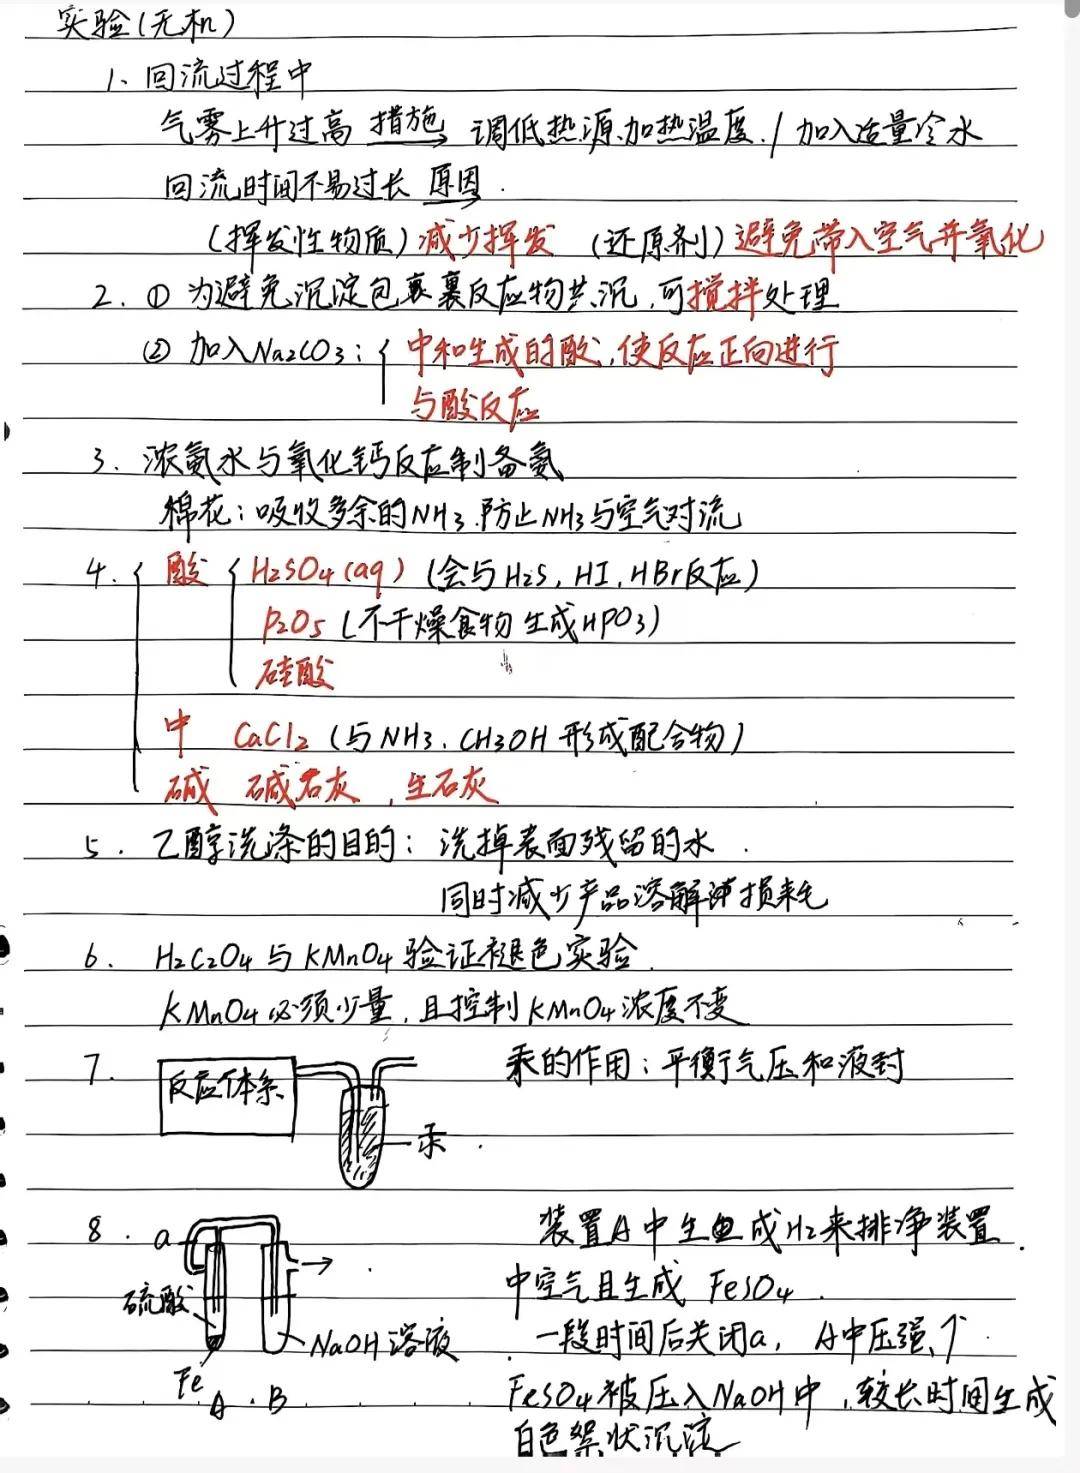 实验(无机)
1、回流过程中
气雾上升过高 措施 调低热源加热温度./加入适量冷水
回流时间不易过长 原因.
(挥发性物质)减少挥发 (还原剂)避免带入空气并氧化
2. ① 为避免沉淀包裹裹反应物共沉,可搅拌处理
② 加入Na2CO3: { 中和生成的酸,使反应正向进行
与酸反应
3. 浓氨水与氧化钙反应制备氨
棉花:吸收多余的NH3.防止NH3与空气对流
4. { 酸 { H2SO4(aq) (会与H2S, HI, HBr反应)
P2O5 (不干燥食物 生成HPO3)
硅酸
中 CaCl2 (与NH3、CH3OH 形成配合物)
碱 碱石灰,生石灰
5. 乙醇洗涤的目的: 洗掉表面残留的水.
同时减少产品溶解 损耗
6. H2C2O4与KMnO4验证褪色实验.
KMnO4必须少量,且控制KMnO4浓度不变
7. 反应体系 汞的作用:平衡气压和液封
汞.
8. a 装置A中生 成H2来排净装置.
硫酸 中空气且生成 FeSO4.
NaOH溶液 一段时间后关闭a, A中压强↑.
Fe A B FeSO4被压入NaOH中,较长时间生成
白色絮状沉淀